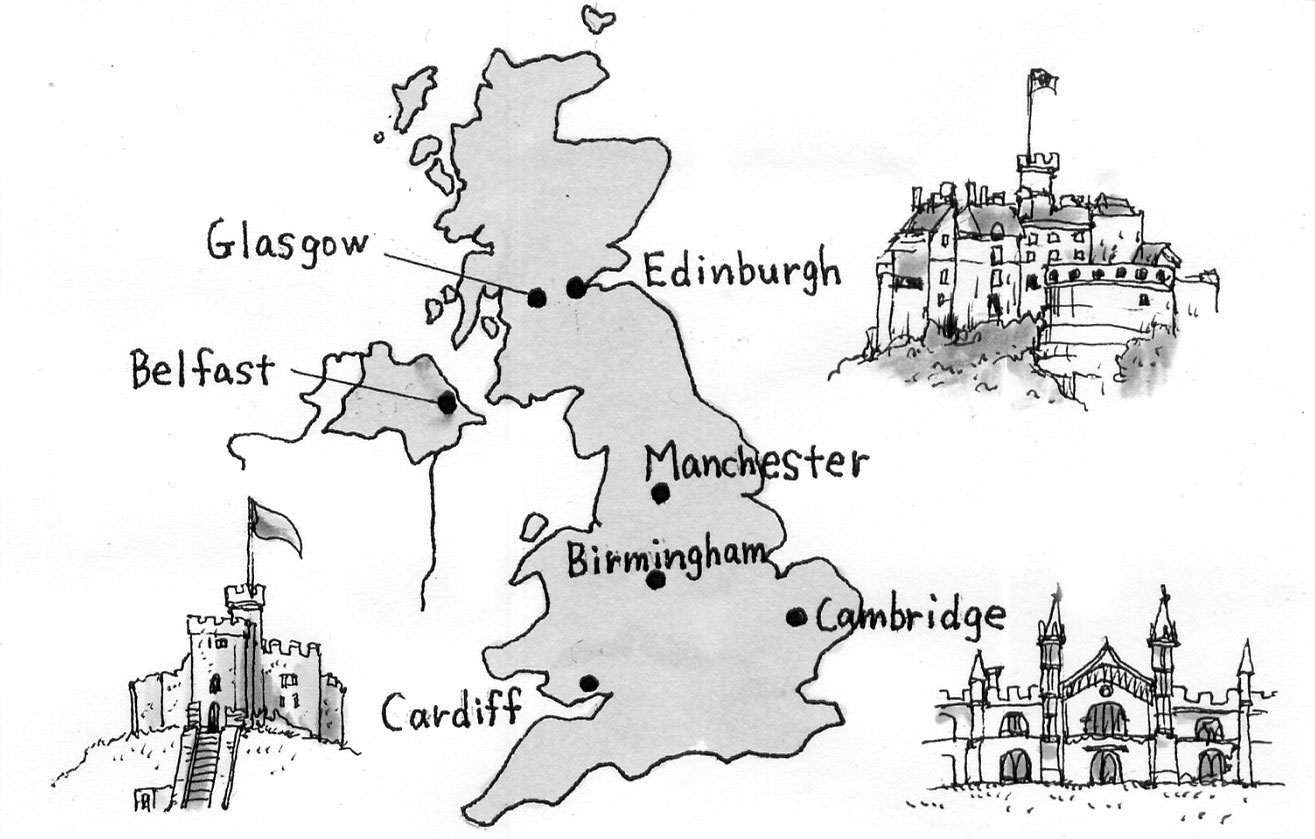 Glasgow
Edinburgh
Belfast
Manchester
Birmingham
Cambridge
Cardiff